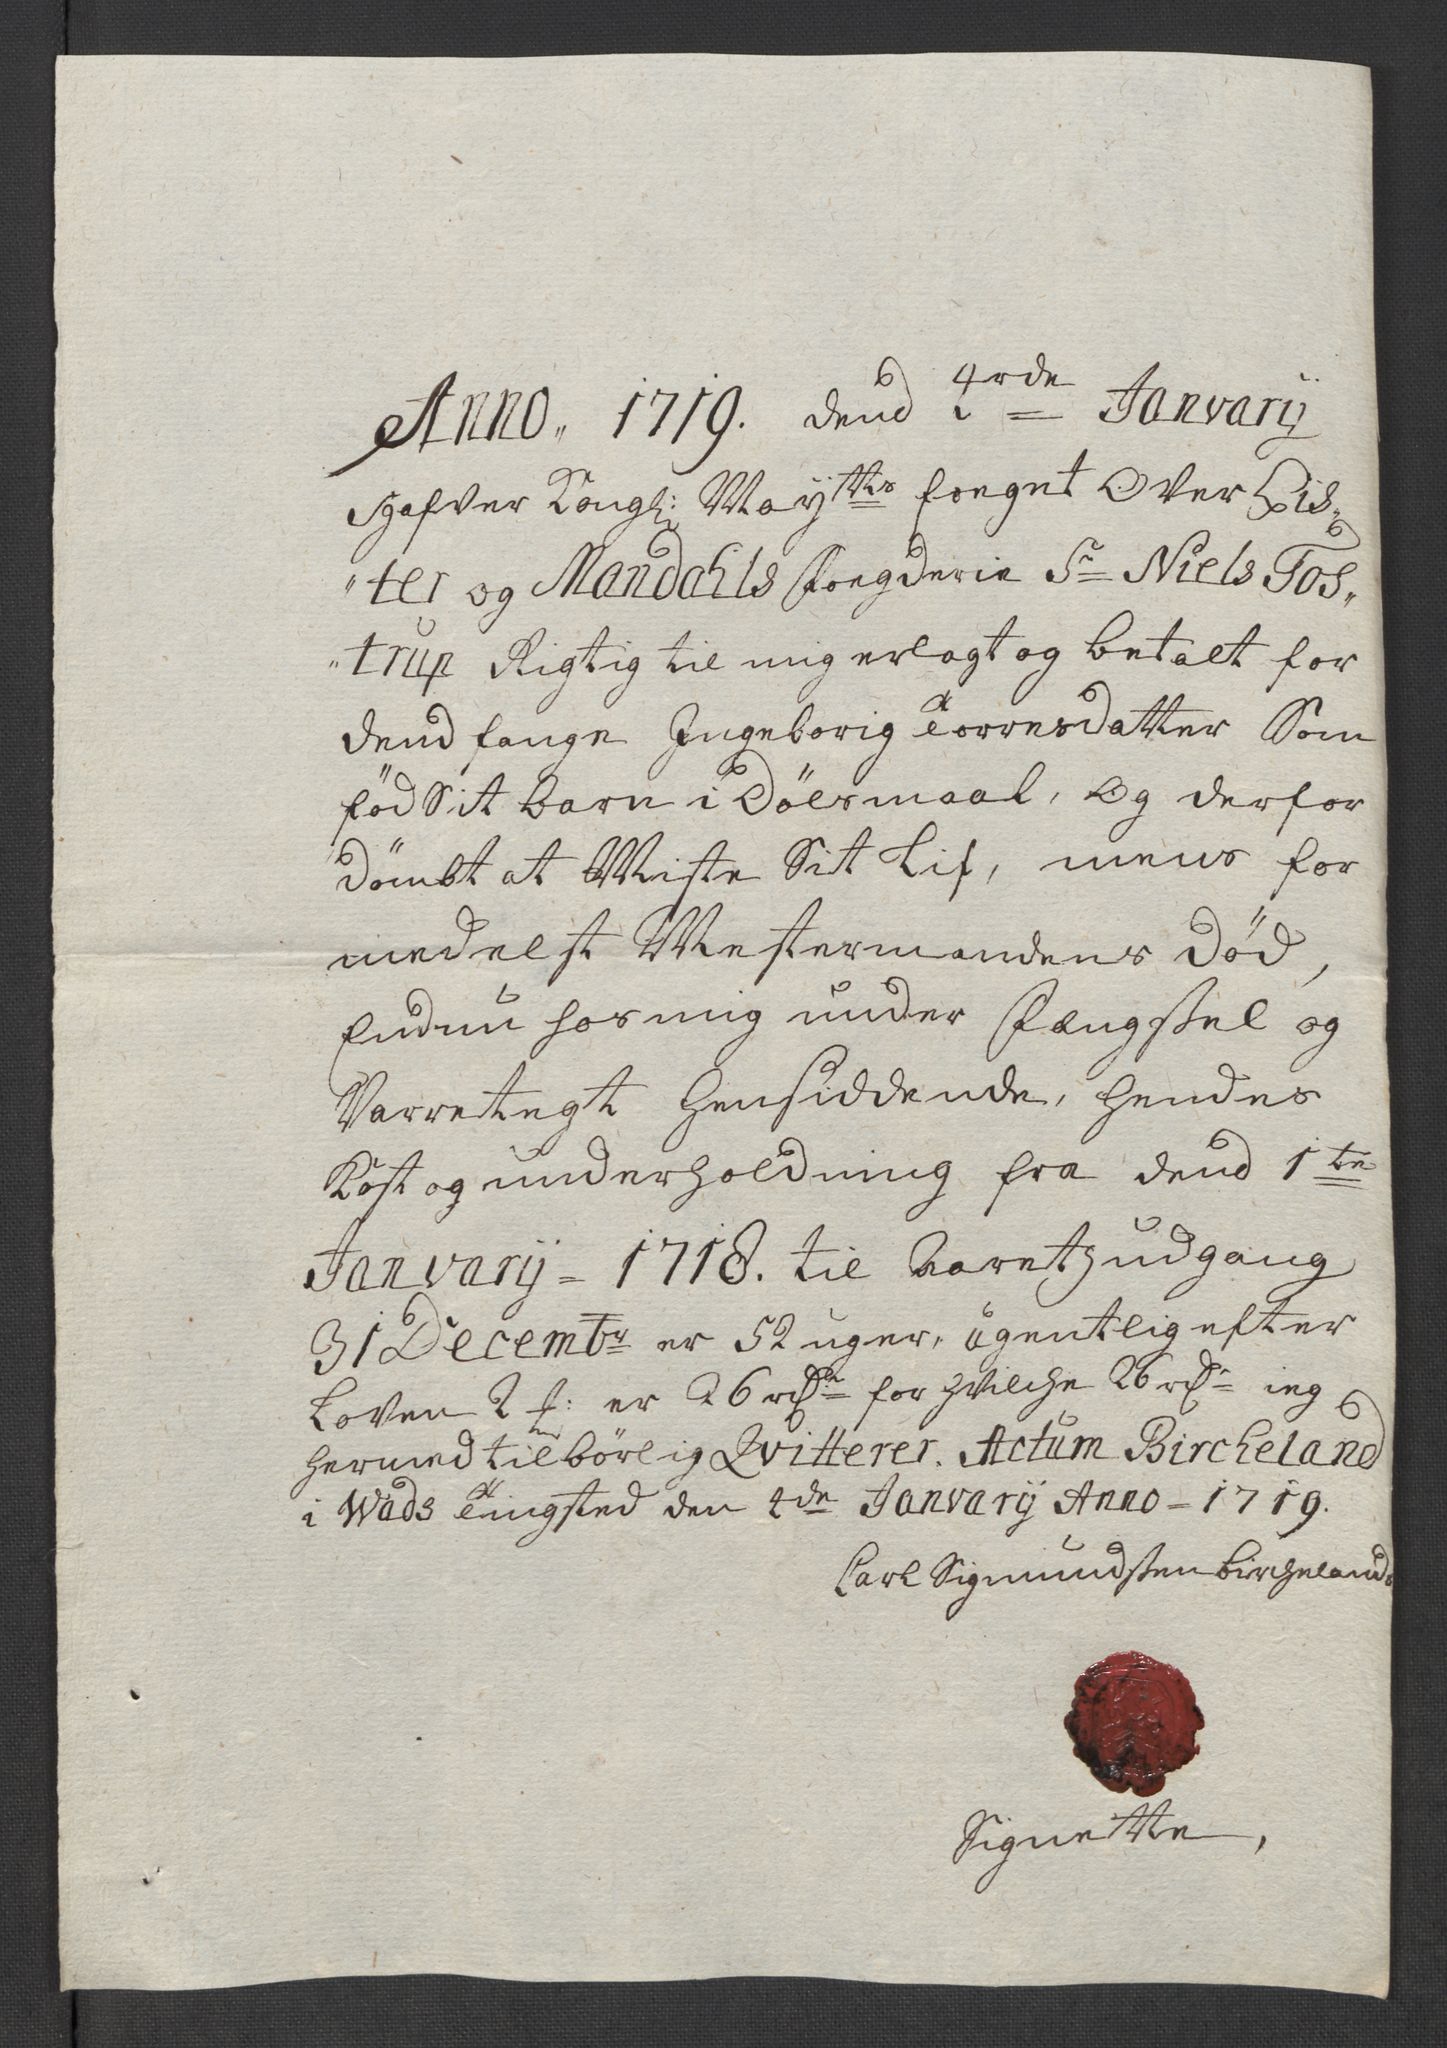 Anno„ 1719. dend 4rde Janvarij
Hafver Kongl: May:ttes foegnt Over Lis„
„ter og Mandahls foegderie Sr Niels Tos„
„trup Rigtig til mig erlagt og betalt for
dend fange Ingeborig Torresdatter Som
fød Sit barn i Dølsmaal, Og derfor
dømbt at Miste Sit Lif, mens for
medelst Mestermandens Død,
Endnu hos mig under Fængssel og
Varretegt hensiddende, hendes
Kost og underholdning fra dend 1te
Janvarij = 1718. til Aaretz udgang
31 Decembr er 52 uger, ugentlig efter
Loven 2 er 26 rdr for hvilche 26 rdr ieg
hermed tilbørlig Qvitterer. Actum Bircheland
i Wads Tingsted den 4de Janvarij Anno = 1719.
Carl Sigmundssen Bircheland
Signette,